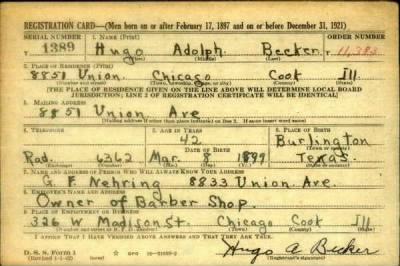 REGISTRATION CARD—(Men born on or after February 17, 1897 and on or before December 31, 1921)
SERIAL NUMBER 1. NAME (Print) ORDER NUMBER
1389 Hugo Adolph Becker 11,383
(First) (Middle) (Last)
2. PLACE OF RESIDENCE (Print)
8851 Union. Chicago Cook Ill.
(Number and street) (Town, township, village, or city) (County) (State)
[THE PLACE OF RESIDENCE GIVEN ON THE LINE ABOVE WILL DETERMINE LOCAL BOARD
JURISDICTION; LINE 2 OF REGISTRATION CERTIFICATE WILL BE IDENTICAL]
3. MAILING ADDRESS
8851 Union Ave
[Mailing address if other than place indicated on line 2. If same insert word same]
4. TELEPHONE 5. AGE IN YEARS 6. PLACE OF BIRTH
42 Burlington
DATE OF BIRTH (Town or county)
Rad. 6362 Mar. 8 1899 Texas.
(Exchange) (Number) (Mo.) (Day) (Yr.) (State or country)
7. NAME AND ADDRESS OF PERSON WHO WILL ALWAYS KNOW YOUR ADDRESS
G. F. Nehring 8833 Union. Ave.
8. EMPLOYER'S NAME AND ADDRESS
Owner of Barber Shop.
9. PLACE OF EMPLOYMENT OR BUSINESS
326 W Madison St. Chicago Cook Ill
(Number and street or R. F. D. number) (Town) (County) (State)
I AFFIRM THAT I HAVE VERIFIED ABOVE ANSWERS AND THAT THEY ARE TRUE.
D. S. S. Form 1 GPO Hugo A Becker
(Revised 1-1-42) (over)